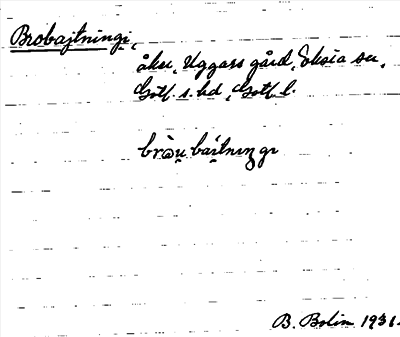 Brobajtningi,
åker, Uggars gård, Eksta sn,
Gotl. s. hd, Gotl. l.
bròu̯ bái̯tnıŋgı
B. Bolin 1931.